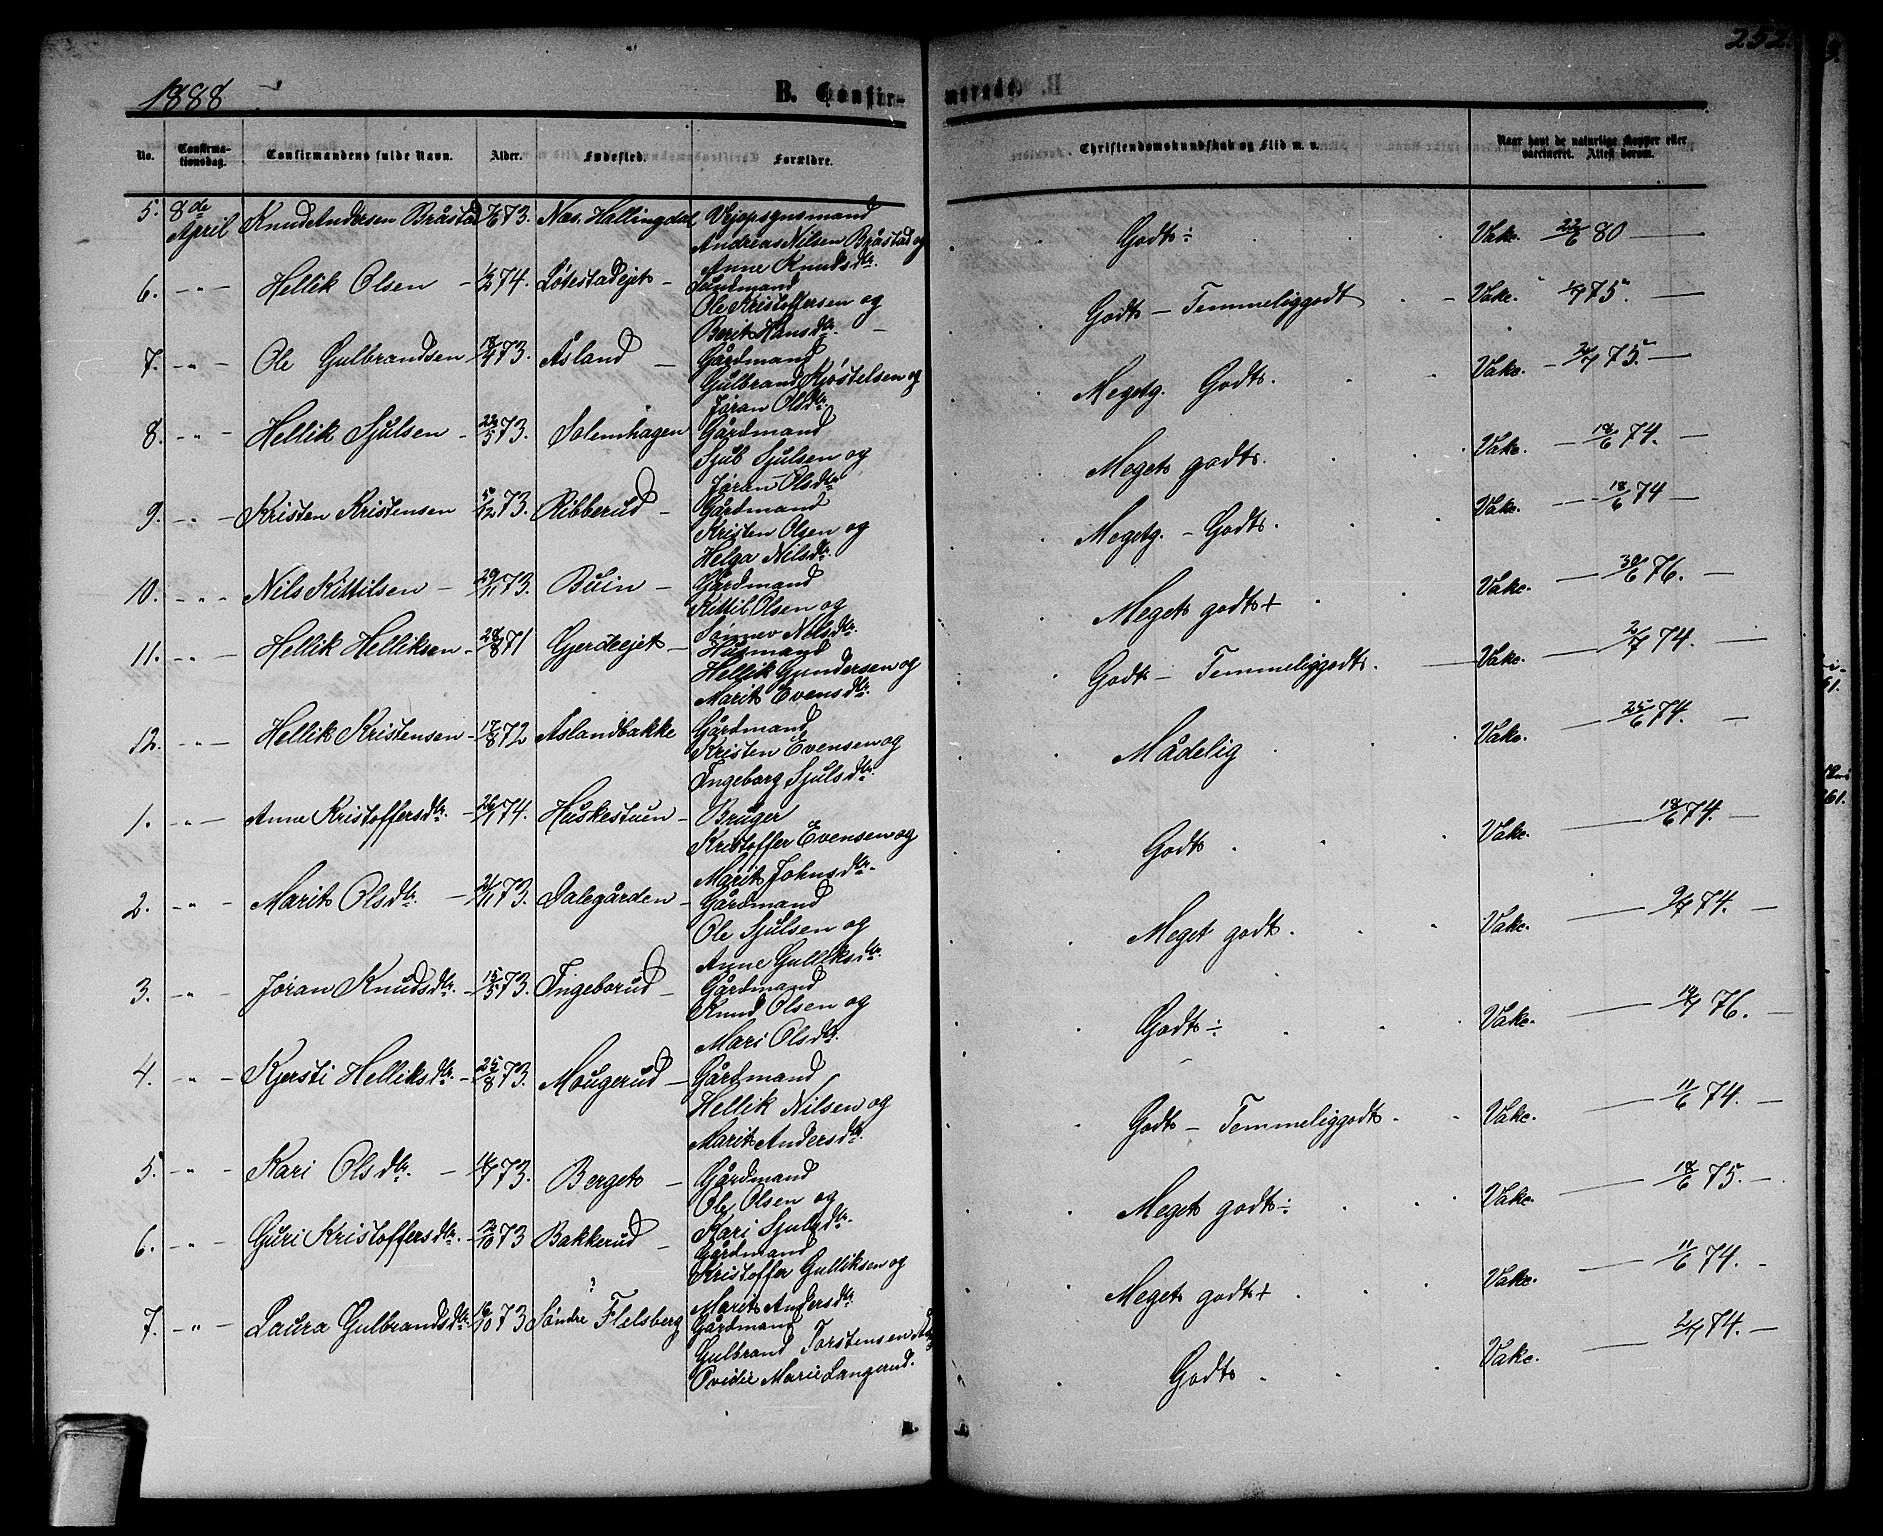 252
1888
B. Confirmerede.
No.
Confirmationsdag.
Confirmandens fulde Navn.
Alder.
Fødested.
Forældre.
Christendomskundskab og Flid m. v.
Naar havt de naturlige Kopper eller vaccineret. Attest derom.
5. 8de April Knud Andersen Bråstad 73. Næs. Hallingdal Vejopsynsmand
Andreas Nilsen Bråstad og
Anne Knudsdtr.
Godt ÷ Vakc. 22/6 80
6. - " - Hellik Olsen 74. Løtestadejet
Ole Kristoffersen og
Berit Hansdtr.
Godt - Temmeliggodt Vakc. 75.
7. - " - Ole Gulbrandsen 18/4 73. Åsland Gårdmand
Gulbrand Kjøstelsen og
Jøran Olsdtr.
Megetg. Godt. Vakc. 75.
8. - " - Hellik Sjulsen 23/5 73. Solemhagen Gårdmand
Sjul Sjulsen og
Jøran Olsdtr.
Meget godt. Vakc. 18/6 74.
9. - " - Kristen Kristensen 5/12 73. Ribberud Gårdmand
Kristen Olsen og
Helga Nilsdtr.
Megetg. - Godt. Vakc. 18/6 74
10. - " - Nils Kittilsen 29/11 73. Buin Gårdmand
Kittil Olsen og
Sønnev Nilsdtr.
Meget godt + Vakc. 30/6 76.
11. - " - Hellik Helliksen 28/8 71 Gjerdeejet Husmand
Hellik Gundersen og
Marit Evensdtr.
Godt - Temmeliggodt. Vakc. 2/7 74.
12. - " - Hellik Kristensen 17/8 72 Aslandbakke Gårdmand
Kristen Evensen og
Ingeborg Sjulsdtr.
Mådelig Vakc. 25/6 74.
1. - " - Anne Kristoffersdtr. 26/1 74. Huskestuen Bruger
Kristoffer Evensen og
Marit Johnsdtr.
Godt Vakc. 18/6 74.
2. - " - Marit Olsdtr. 73. Dalegården Gårdmand
Ole Sjulsen og
Anne Gulliksdtr.
Meget godt. Vakc. 9/7 74.
3. - " - Jøran Knudsdtr. 15/5 73. Ingeborud Gårdmand
Knud Olsen og
Mari Olsdtr.
Godt ÷ Vakc. 76.
4. - " - Kjersti Helliksdtr. 25/8 73. Mougerud Gårdmand
Hellik Nilsen og
Marit Andersdtr.
Godt - Temmeliggodt. Vakc. 11/6 74.
5. - " - Kari Olsdtr. 73. Berget Gårdmand
Ole Olsen og
Kari Sjulsdtr.
Meget godt ÷ Vakc. 18/6 75.
6. - " - Guri Kristoffersdtr. 73 Bakkerud Gårdmand
Kristoffer Gulliksen og
Marit Andersdtr.
Meget godt + Vakc. 11/6 74.
7. - " - Laura Gulbrandsdtr. 16/10 73 Søndre Flelsberg Gårdmand
Gulbrand Torstensen
Ovidie Marie Langerud.
Godt Vakc. 2/7 74.